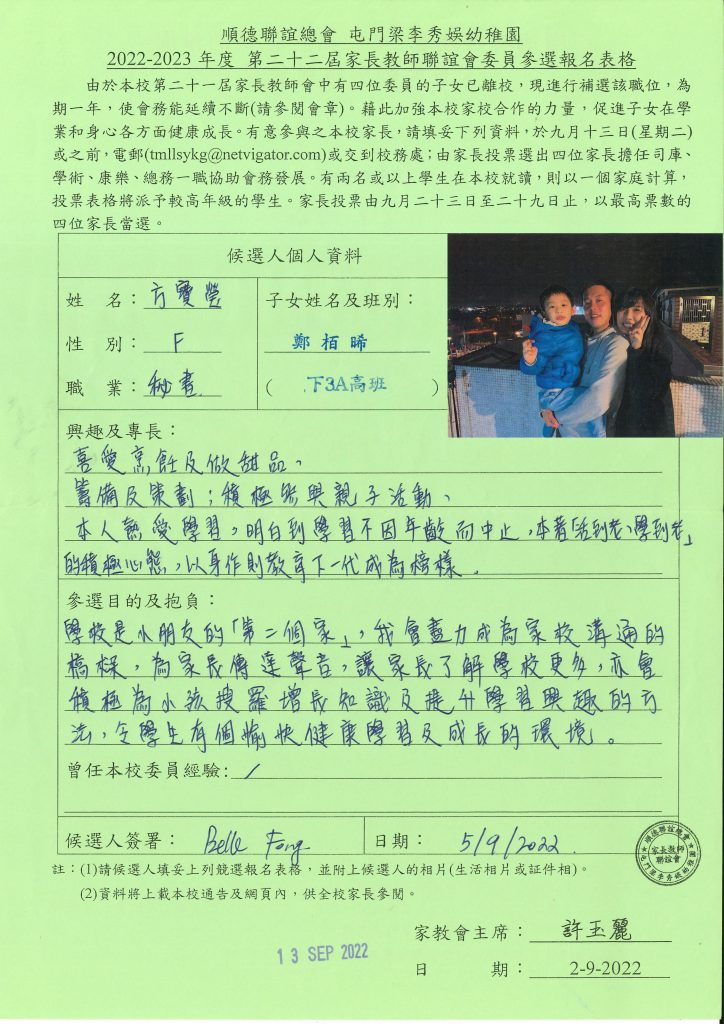 順德聯誼總會 屯門梁李秀娛幼稚園
2022-2023 年度 第二十二屆家長教師聯誼會委員參選報名表格
由於本校第二十一屆家長教師會中有四位委員的子女已離校，現進行補選該職位，為
期一年，使會務能延續不斷(請參閱會章)。藉此加強本校家校合作的力量，促進子女在學
業和身心各方面健康成長。有意參與之本校家長，請填妥下列資料，於九月十三日(星期二)
或之前，電郵(tmllsykg@netvigator.com)或交到校務處；由家長投票選出四位家長擔任司庫、
學術、康樂、總務一職協助會務發展。有兩名或以上學生在本校就讀，則以一個家庭計算，
投票表格將派予較高年級的學生。家長投票由九月二十三日至二十九日止，以最高票數的
四位家長當選。
候選人個人資料
姓 名：方寶瑩
子女姓名及班別：
性 別：F
鄭栢晞
職 業：秘書
( 下3A高班 )
興趣及專長：
喜愛烹飪及做甜品、
籌備及策劃；積極參與親子活動、
本人熱愛學習，明白到學習不因年齡而中止，本着「活到老、學到老」
的積極心態，以身作則教育下一代成為榜樣．
參選目的及抱負：
學校是小朋友的「第二個家」，我會盡力成為家校溝通的
橋樑，為家長傳達聲音，讓家長了解學校更多，亦會
積極為小孩搜羅增長知識及提升學習興趣的方
法，令學生有個愉快健康學習及成長的環境。
曾任本校委員經驗: /
候選人簽署： Belle Fong
日期： 5/9/2022.
順德聯誼總會
家長教師
聯誼會
屯門梁李秀娛幼稚園
註：(1)請候選人填妥上列競選報名表格，並附上候選人的相片(生活相片或証件相)。
(2)資料將上載本校通告及網頁內，供全校家長參閱。
家教會主席： 許玉麗
13 SEP 2022
日 期： 2-9-2022